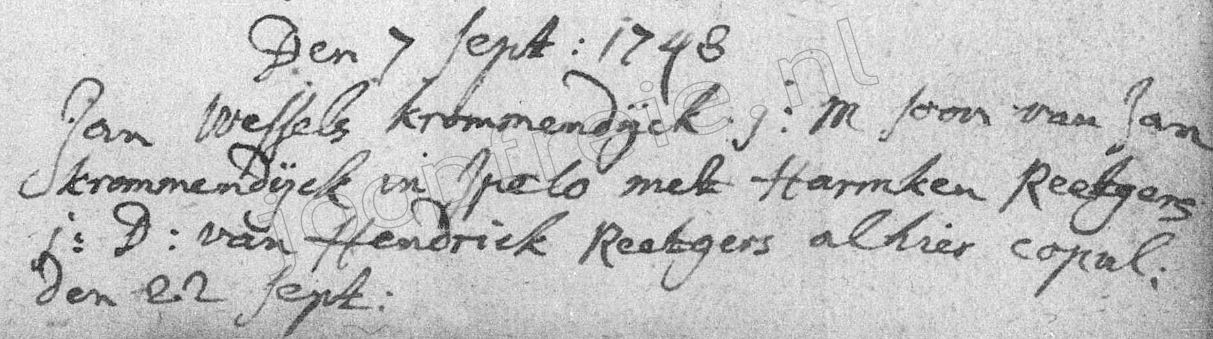 Den 7 sept: 1748
Jan Wessels krommendijck j: M soon van Jan
krommendijck in Ipelo met Harmken Reetgers
j: D: van Hendrick Reetgers alhier copul:
den 22 sept:
joopfreie.nl